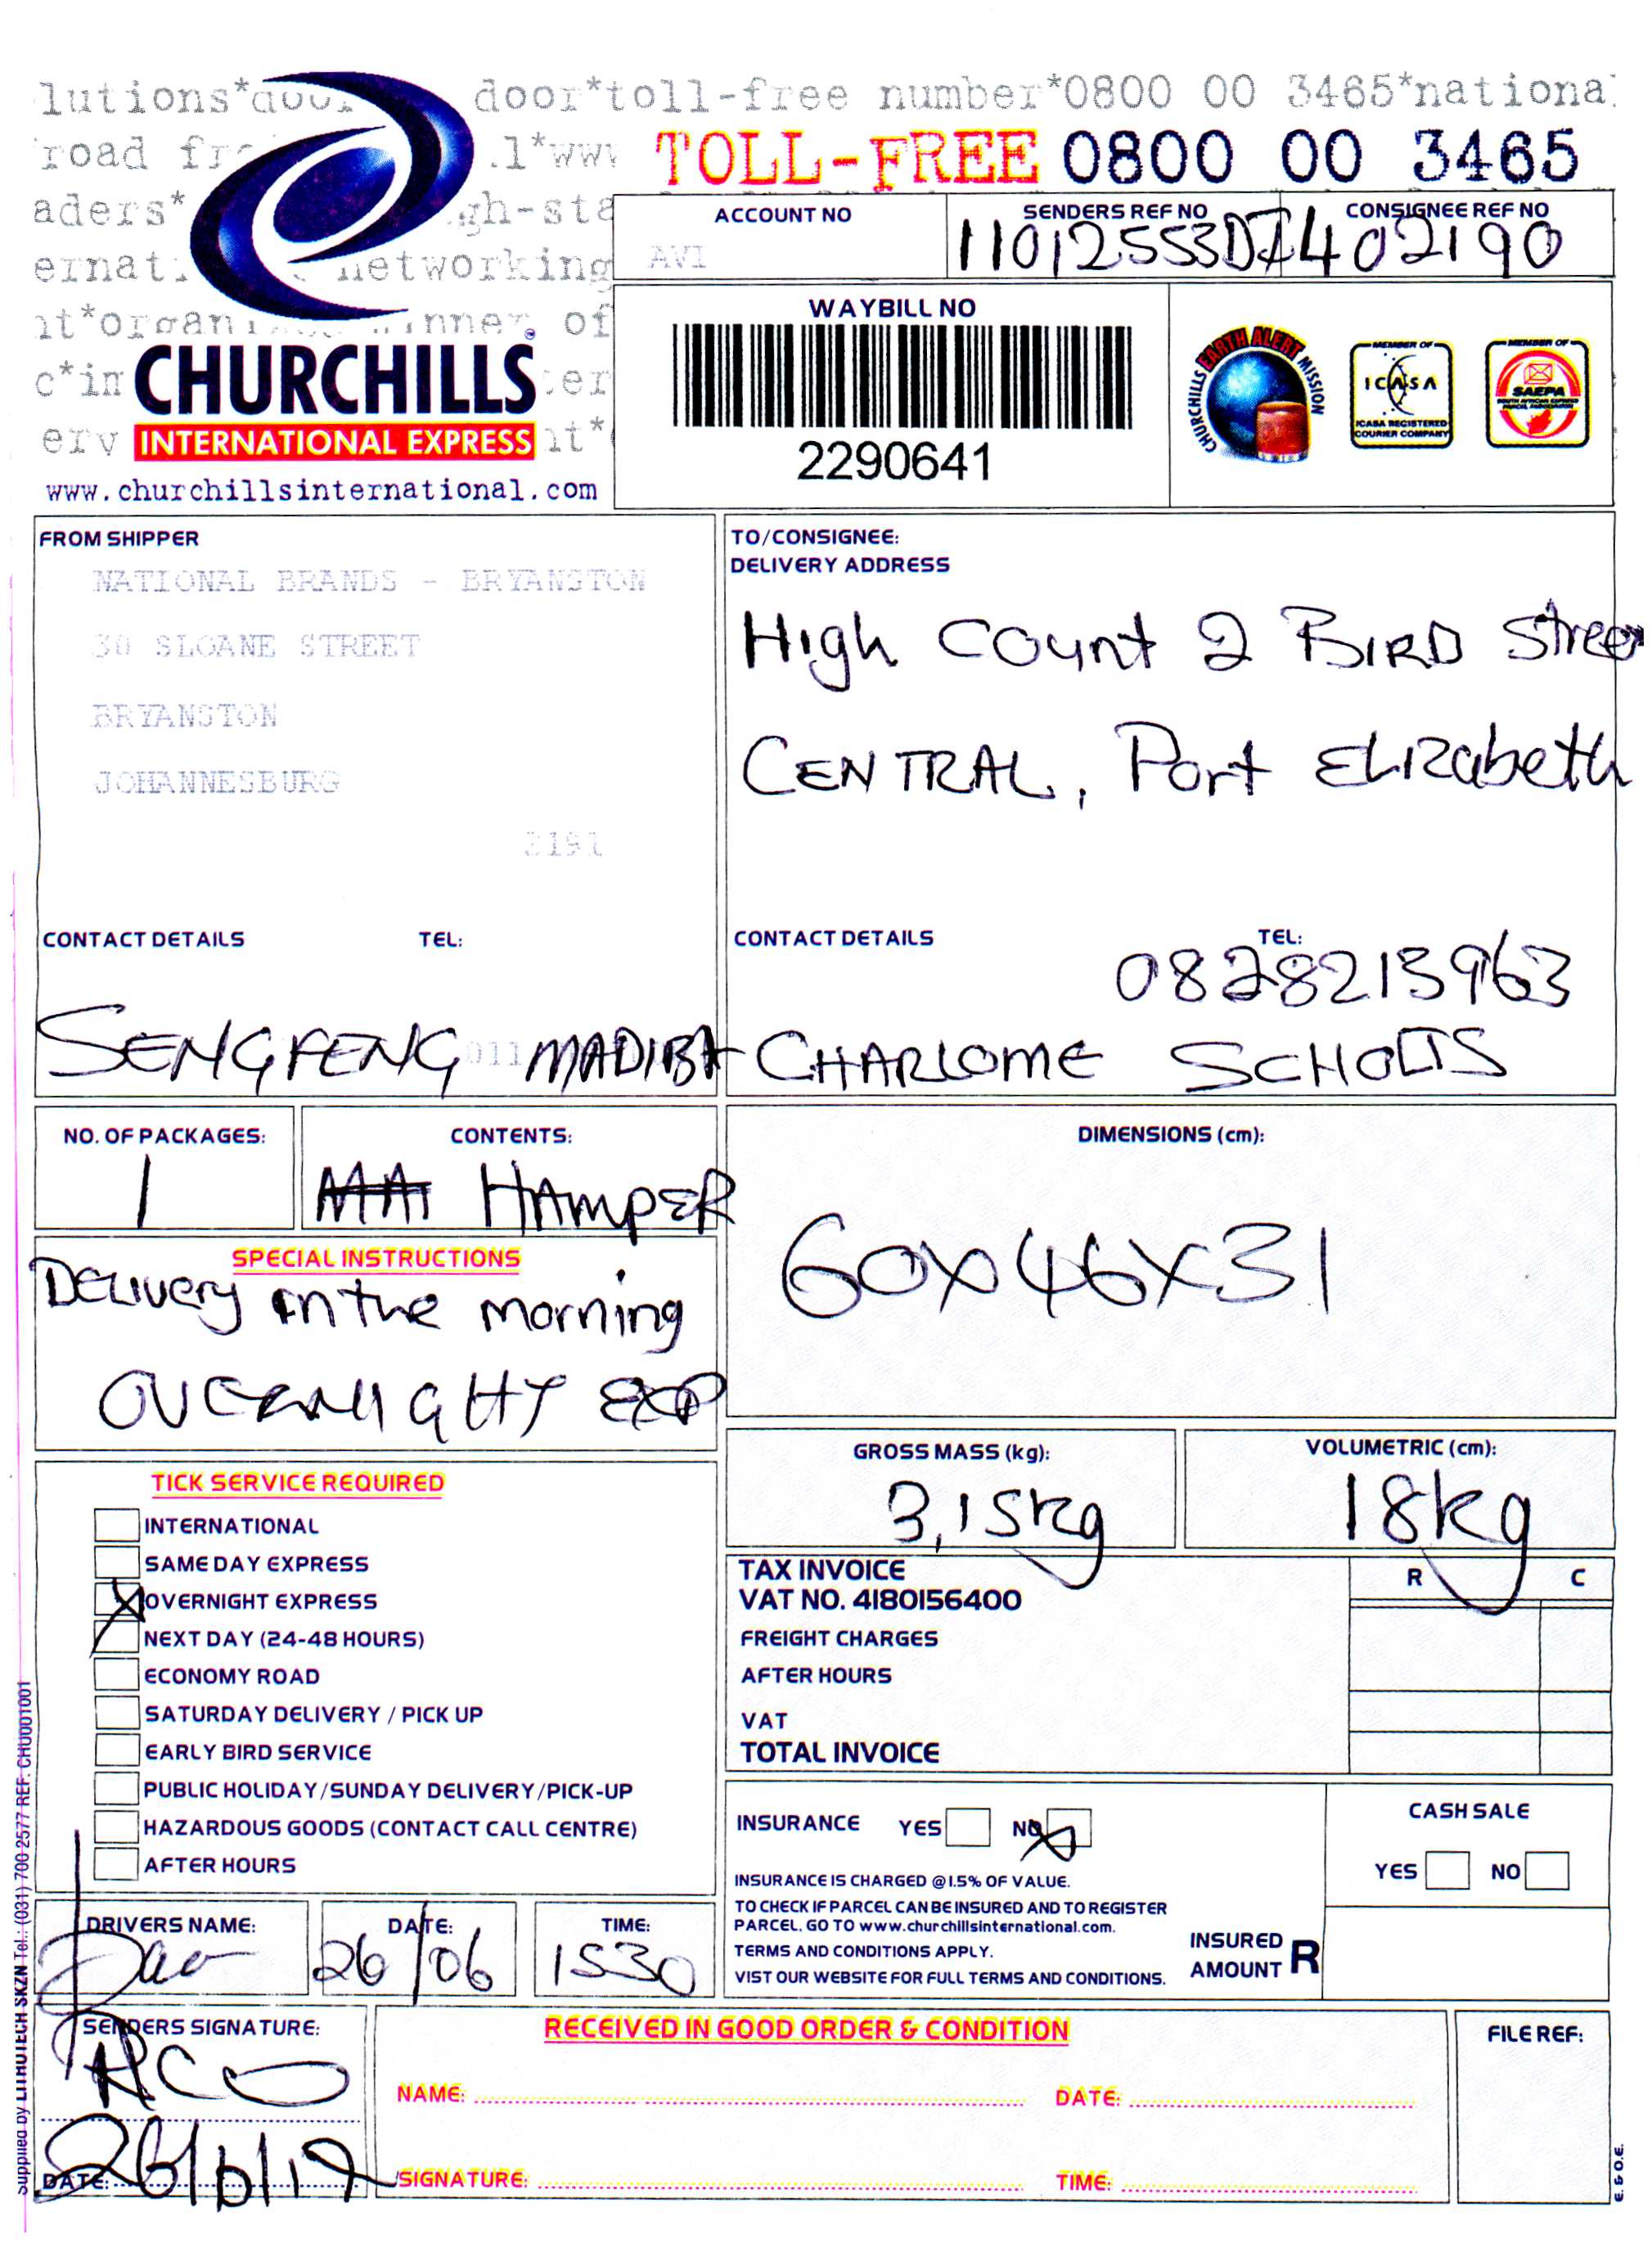 lutions*door door*toll-free number*0800 00 3465*national
road .l*www TOLL-FREE 0800 00 3465
aders* gh-sta
ACCOUNT NO SENDERS REF NO CONSIGNEE REF NO
AVI 402190
networking
of
WAYBILL NO
2290641
CHURCHILLS
INTERNATIONAL EXPRESS
www.churchillsinternational.com
CHURCHILLS EARTH ALERT MISSION
MEMBER OF
ICASA
ICASA REGISTERED
COURIER COMPANY
MEMBER OF
SAEPA
SOUTH AFRICAN EXPRESS
PARCEL ASSOCIATION
FROM SHIPPER
NATIONAL BRANDS - BRYANSTON
30 SLOANE STREET
BRYANSTON
JOHANNESBURG
2191
CONTACT DETAILS TEL:
SENGFENG 011 MADIBA
TO/CONSIGNEE:
DELIVERY ADDRESS
High Count 2 BIRD Street
CENTRAL, Port Elizabeth
CONTACT DETAILS TEL:
0828213963
CHARLOME SCHOLTS
NO. OF PACKAGES: CONTENTS:
1 HAMPER
SPECIAL INSTRUCTIONS
Delivery in the morning
OVERNIGHT EXP
DIMENSIONS (cm):
60x46x31
GROSS MASS (kg): VOLUMETRIC (cm):
3,15kg 18kg
TICK SERVICE REQUIRED
INTERNATIONAL
SAME DAY EXPRESS
OVERNIGHT EXPRESS
NEXT DAY (24-48 HOURS)
ECONOMY ROAD
SATURDAY DELIVERY / PICK UP
EARLY BIRD SERVICE
PUBLIC HOLIDAY/SUNDAY DELIVERY/PICK-UP
HAZARDOUS GOODS (CONTACT CALL CENTRE)
AFTER HOURS
TAX INVOICE R C
VAT NO. 4180156400
FREIGHT CHARGES
AFTER HOURS
VAT
TOTAL INVOICE
INSURANCE YES NO
INSURANCE IS CHARGED @1.5% OF VALUE.
TO CHECK IF PARCEL CAN BE INSURED AND TO REGISTER
PARCEL. GO TO www.churchillsinternational.com.
TERMS AND CONDITIONS APPLY.
VIST OUR WEBSITE FOR FULL TERMS AND CONDITIONS.
INSURED
AMOUNT R
CASH SALE
YES NO
DRIVERS NAME: DATE: TIME:
26/06 1530
SENDERS SIGNATURE:
DATE:
RECEIVED IN GOOD ORDER & CONDITION
NAME: DATE:
SIGNATURE: TIME:
FILE REF:
E. & O.E.
Supplied by LITHOTECH SKZN Tel.: (031) 700 2577 REF. CHU001001